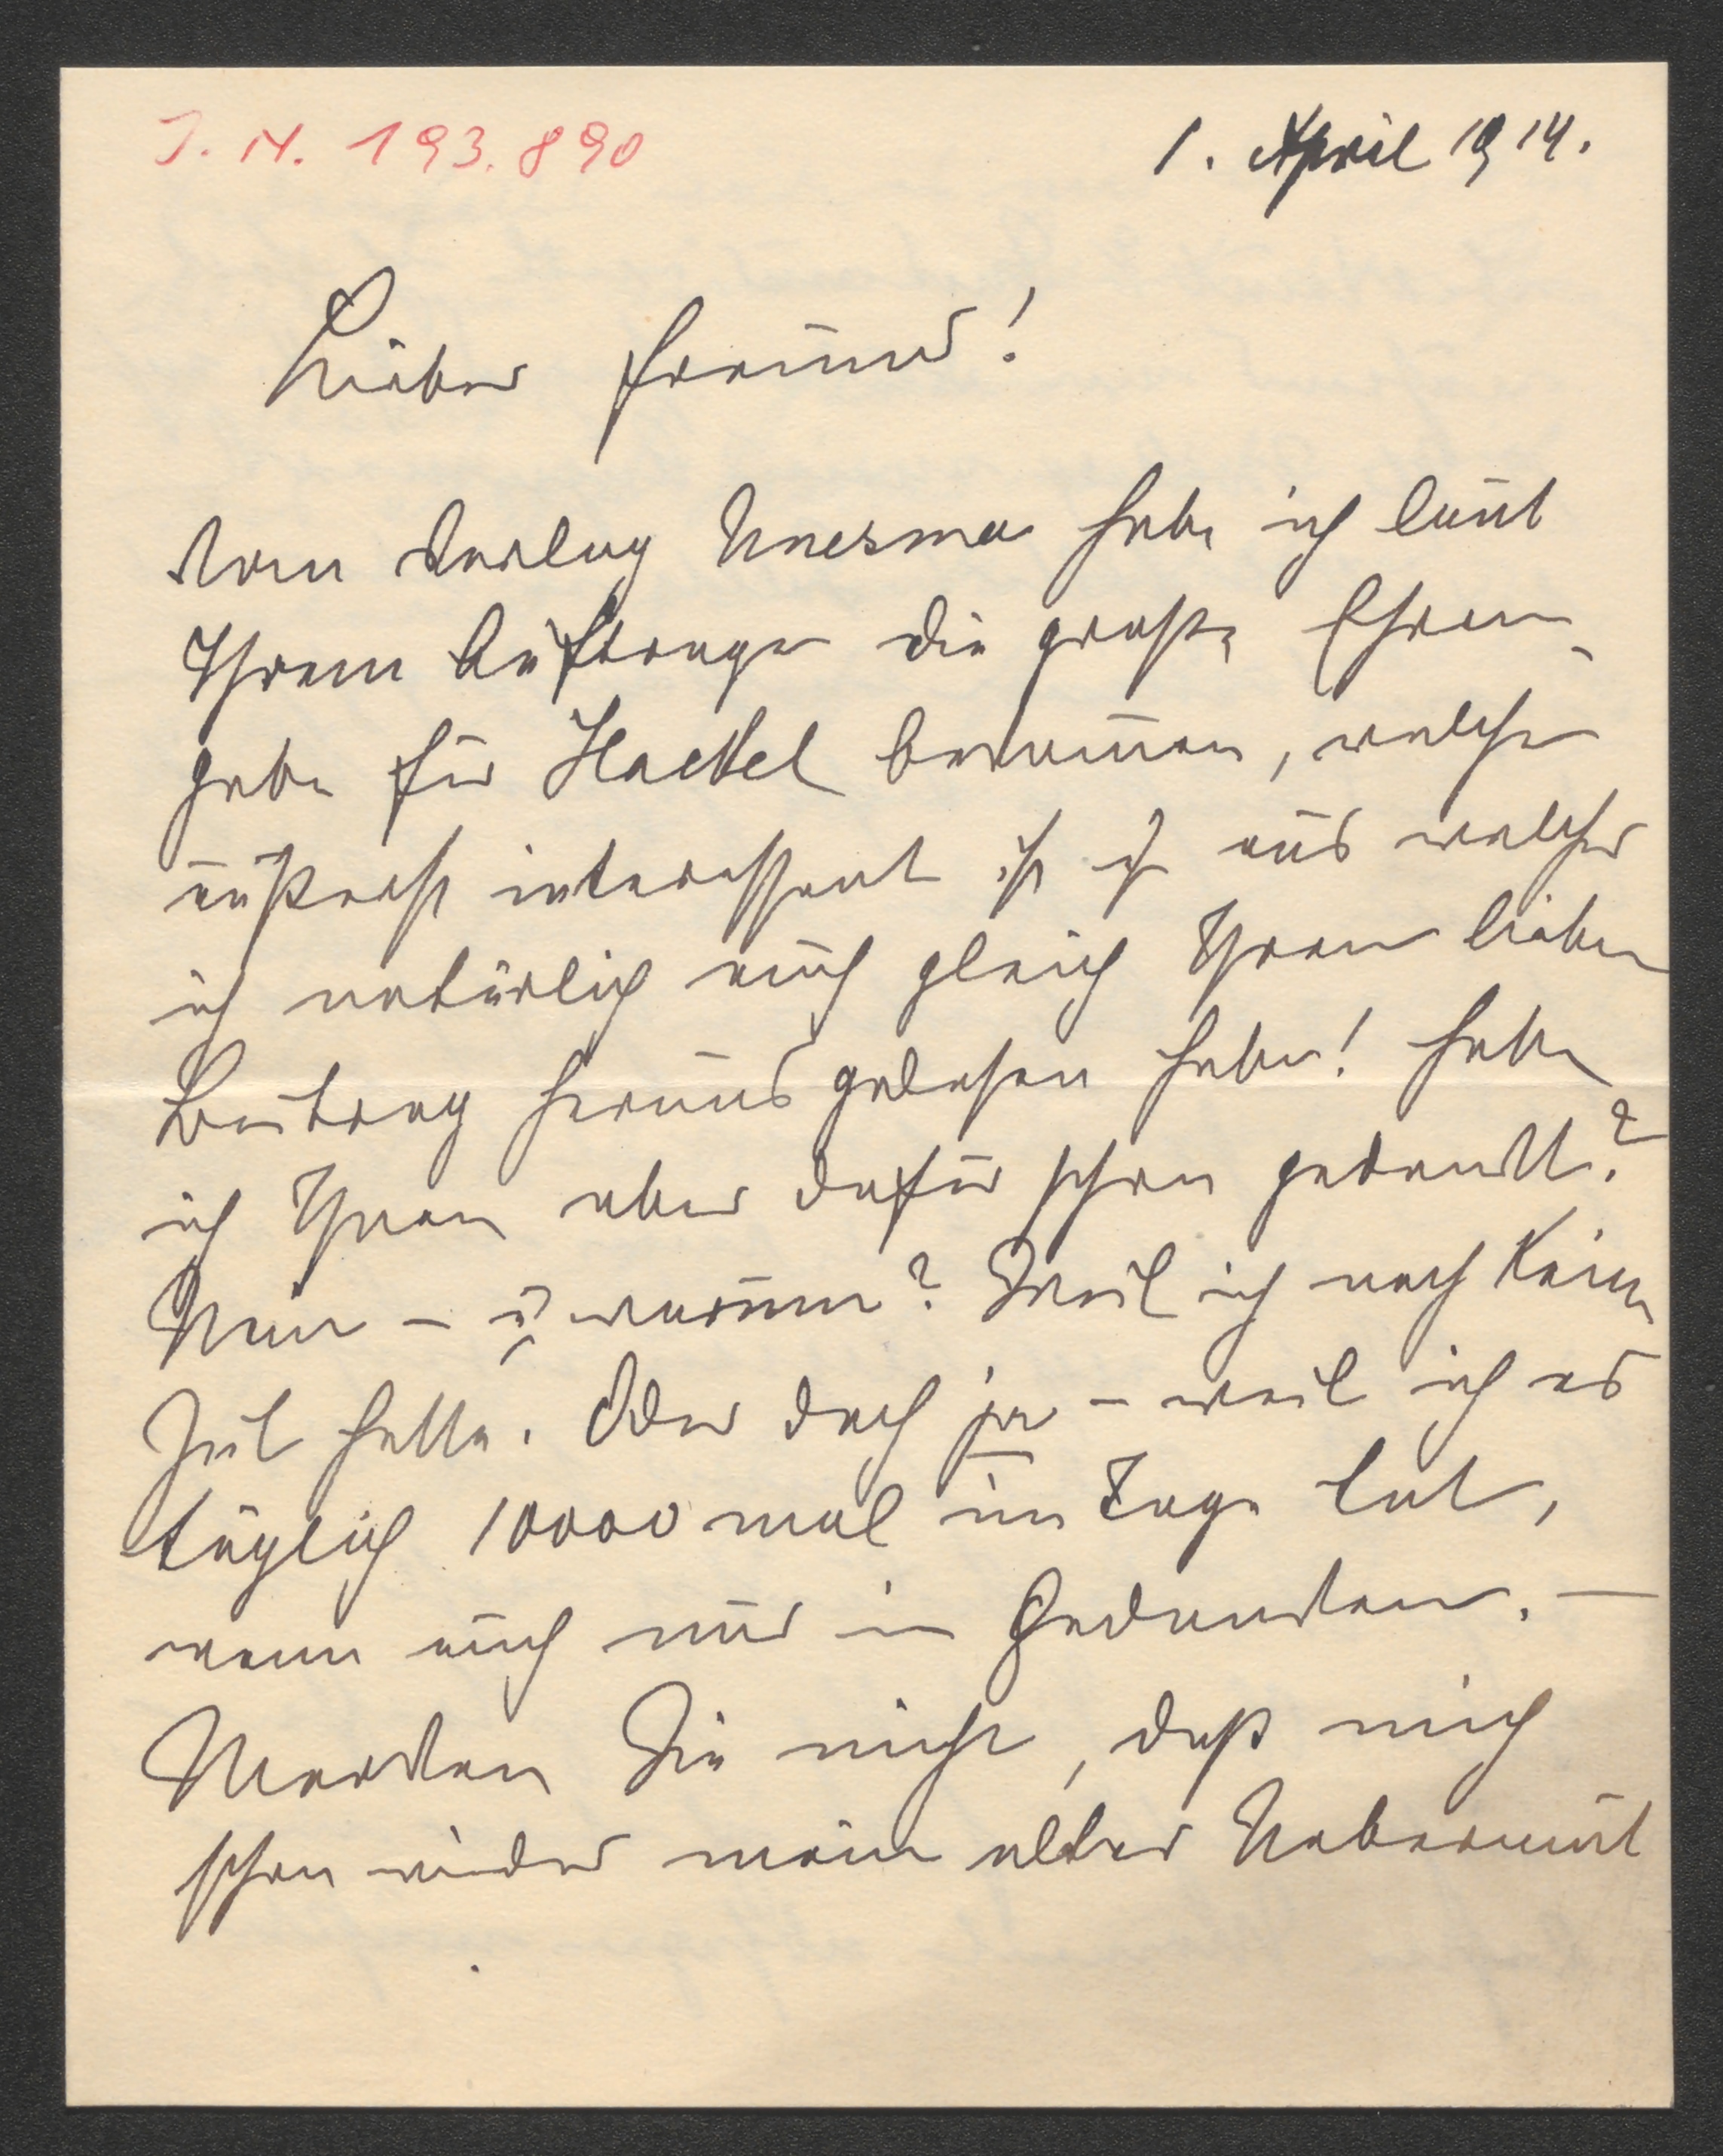 J. N. 193.890
1. April 1914.
Lieber Freund!
Vom Verlag Unesma habe ich laut
Ihrem Auftrage die große Ehren-
gabe für Haeckel bekom̄en, welche
äußerst interessant ist & aus welcher
ich natürlich auch gleich Ihren lieben
Beitrag herausgelesen habe! Habe
ich Ihnen aber dafür schon gedankt?
Nein – u. warum? Weil ich noch keine
Zeit hatte. Oder doch ja – weil ich es
täglich 10000 mal im Tage tat,
wenn auch nur in Gedanken. —
Merken Sie nicht, daß mich
schon wieder mein alter Uebermut